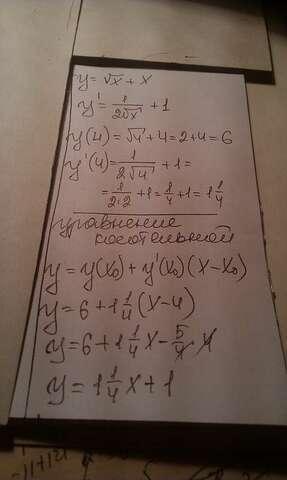 y = √x + x
y' = 1/(2√x) + 1
y(4) = √4 + 4 = 2+4 = 6
y'(4) = 1/(2√4) + 1 =
= 1/(2·2) + 1 = 1/4 + 1 = 1 1/4
уравнение
касательной
y = y(x₀) + y'(x₀)(x - x₀)
y = 6 + 1 1/4 (x - 4)
y = 6 + 1 1/4 x - 5/4 · 4
y = 1 1/4 x + 1